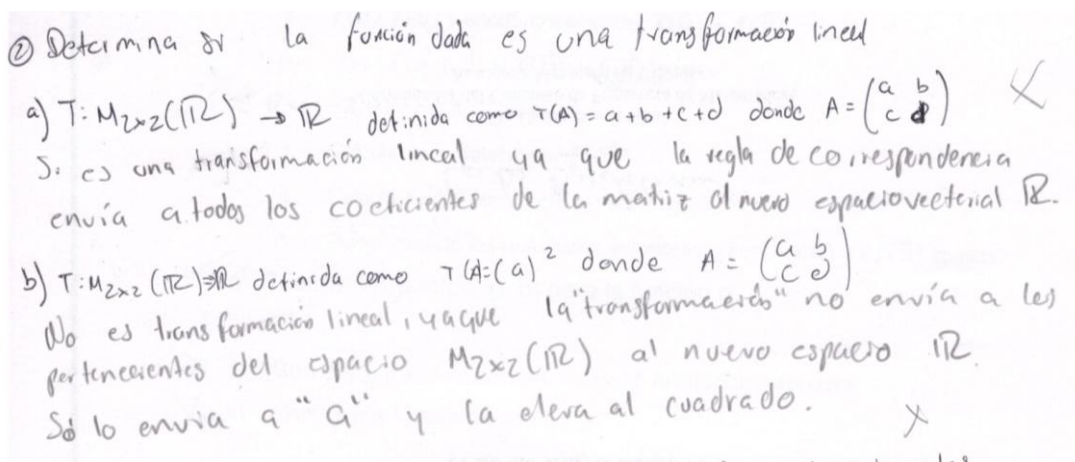 ② Determina si la función dada es una transformación lineal
a) T: M2x2(ℝ) → ℝ definida como T(A) = a+b+c+d donde A = (a b c d)
Si es una transformación lineal ya que la regla de correspondencia
envía a todos los coeficientes de la matriz al nuevo espacio vectorial ℝ.
b) T: M2x2(ℝ)→ℝ definida como T(A=(a)² donde A = (a b c d)
No es transformación lineal, ya que la "transformación" no envía a los
pertenecientes del espacio M2x2(ℝ) al nuevo espacio ℝ
Só lo envia a "a" y la eleva al cuadrado.